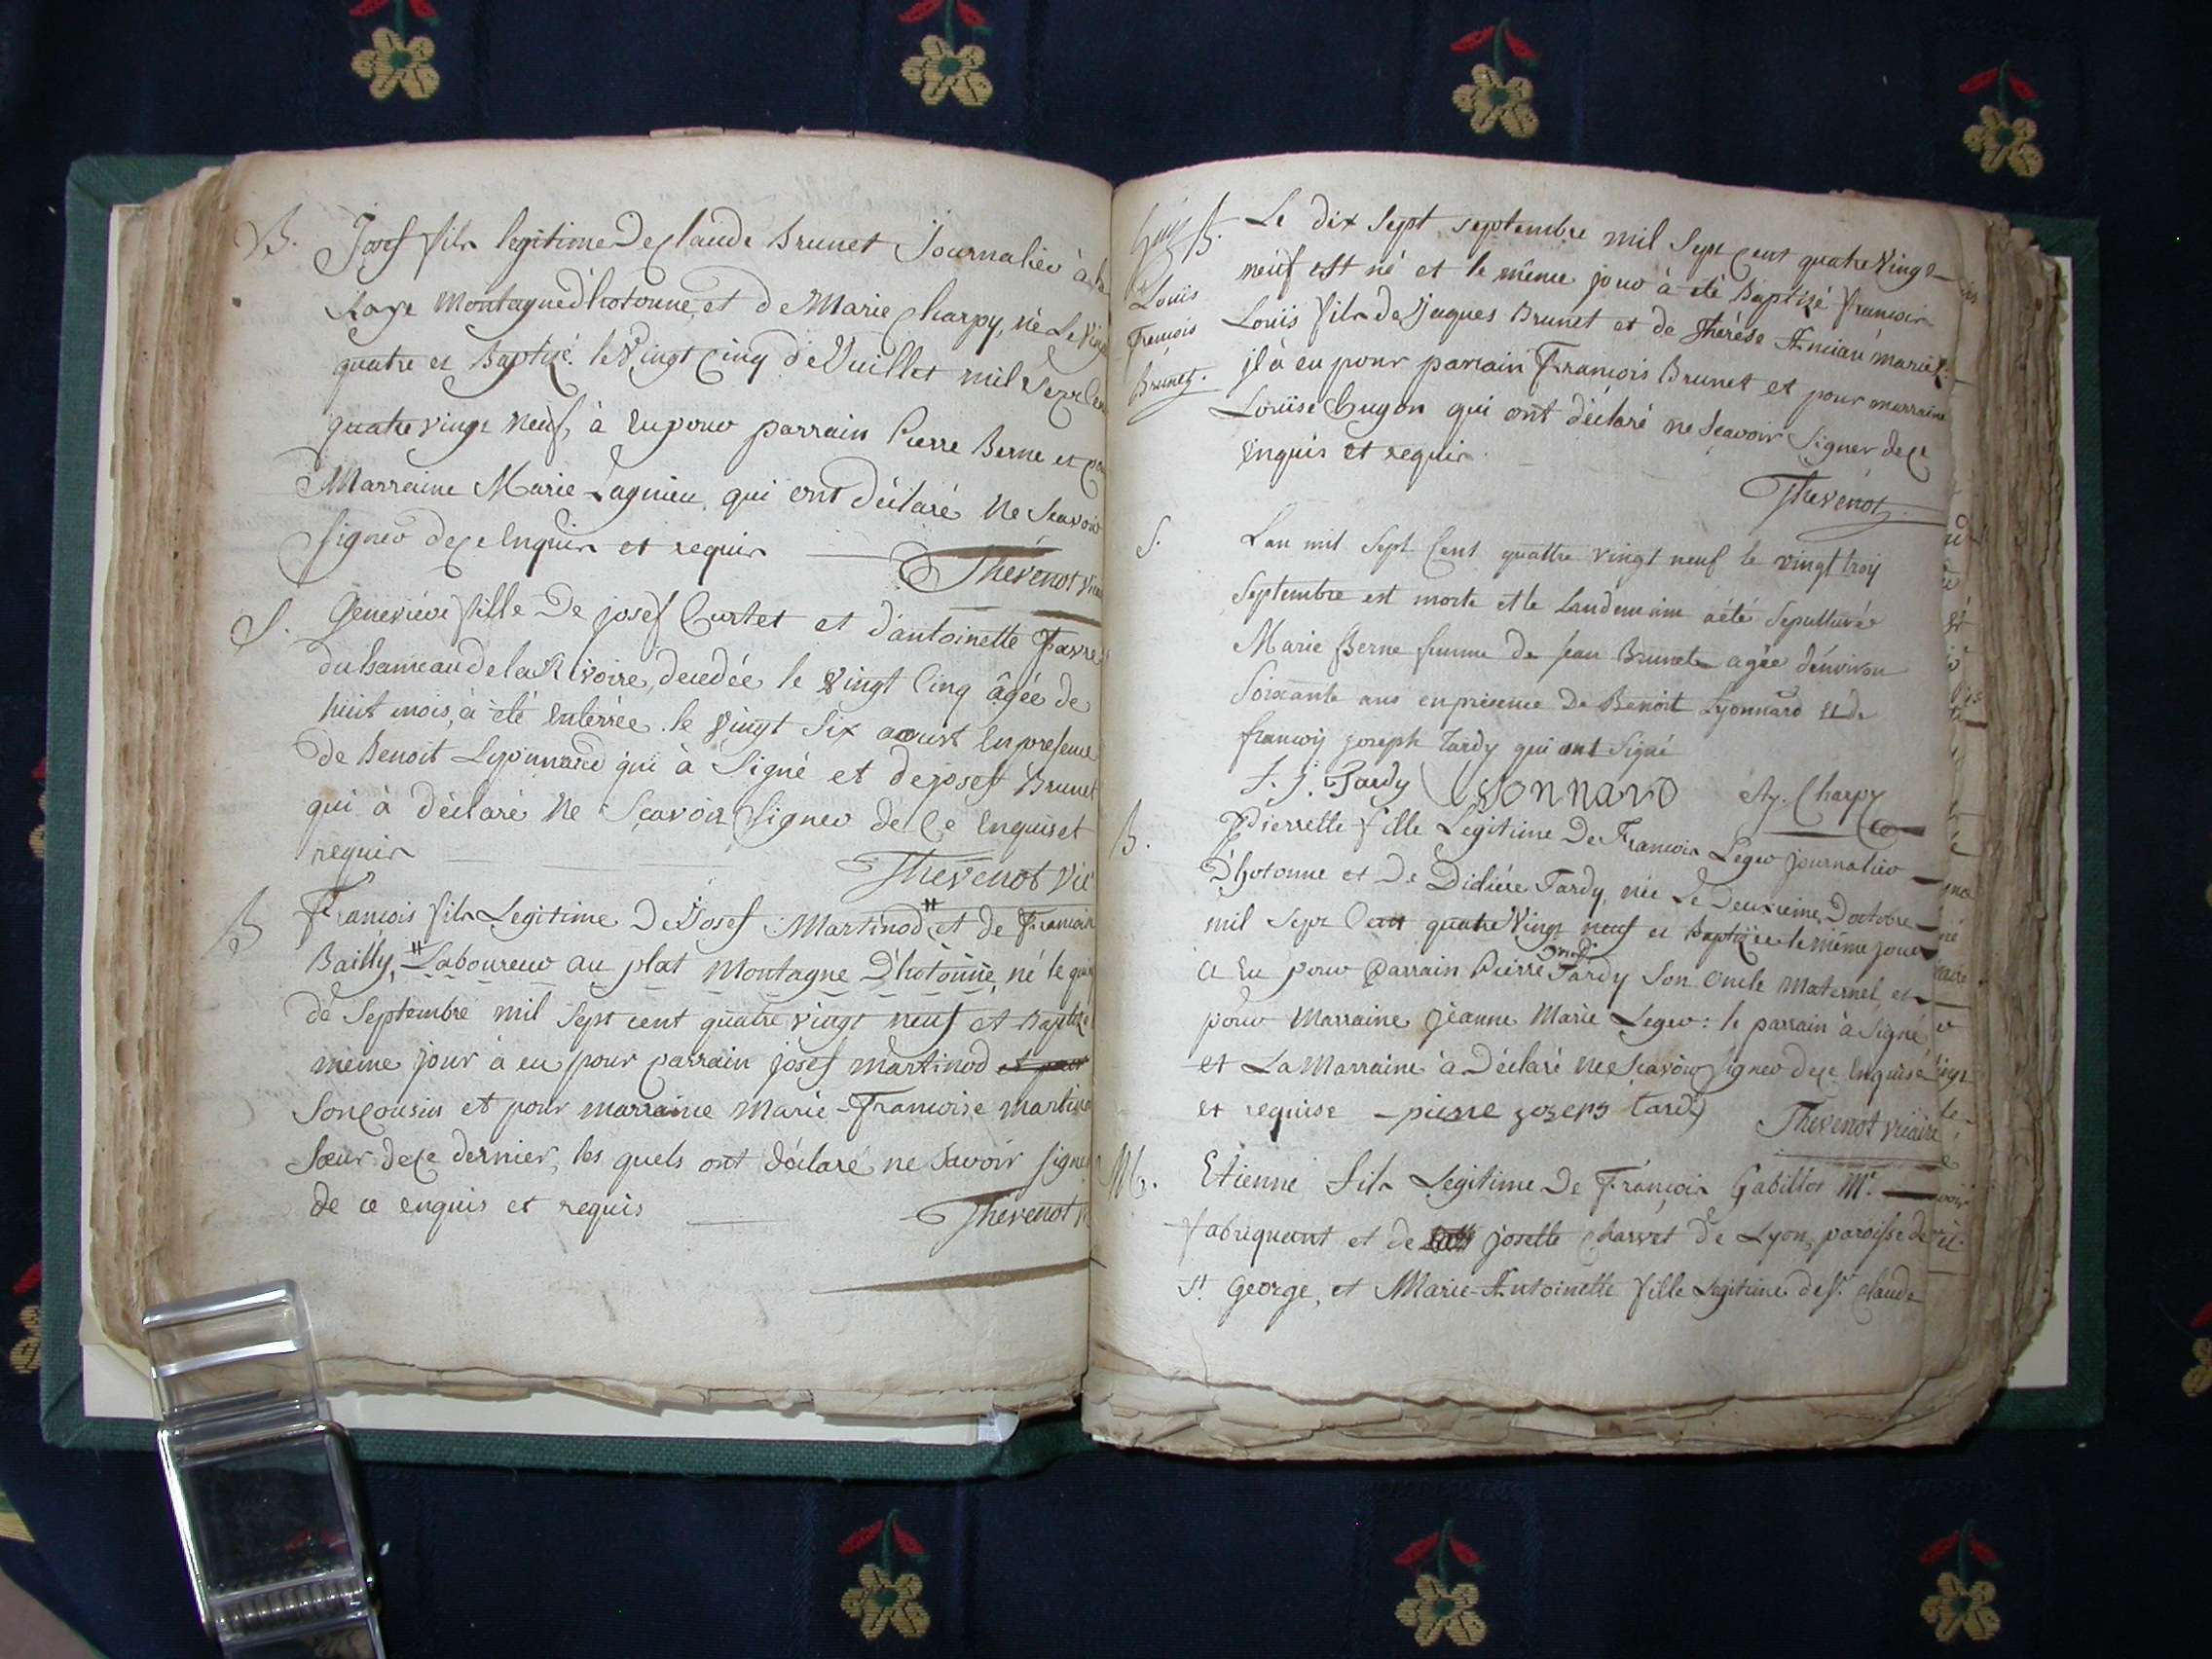 B. Josef fils legitime De Claude Brunet Journalier à la
Montagne d'hotonne, et de Marie Charpy, né Le vingt
quatre et Baptizé le Vingt Cinq de Juillet mil Sept Cent
quatre vingt Neuf, à Eu pour parrain Pierre Berne et pour
Marraine Marie Lagnieu, qui ont déclaré Ne Scavoir
signer de Ce Enquis et requis
Thevenot Vicaire
S. Geneviéve fille De josef Curtet et d'antoinette Favre
du hameau de la Rivoire, decedée le vingt Cinq âgée de
huit mois, à été Enterrée le vingt Six aoust En presence
de Benoit Lyonnard qui à Signé et de josef Brunet
qui à déclaré Ne Sçavoir Signer de Ce Enquis et
requis
Thevenot Vic
B François fils Legitime De Josef Martinod # et de François
Bailly, # Laboureur au plat Montagne D'hotonne, né le
de Septembre mil Sept cent quatre vingt neuf et Baptizé
même jour à eu pour parrain josef martinod et pour
Son Cousin et pour marraine Marie-Francoise martinod
Sœur de Ce dernier, les quels ont déclaré ne Savoir signer
de ce enquis et requis
Thevenot
B. Le dix Sept septembre mil Sept Cent quatre Vingt
neuf est né et le même jour à été Baptizé François
Louis fils de Jaques Brunet et de Thérése Ancian mariés.
il à eu pour parrain François Brunet et pour marraine
Louïse Gugon qui ont déclaré ne Scavoir Signer de Ce
Enquis et requis
Thevenot
Louis
François
Brunet.
S. L'an mil Sept Cent quattre vingt neuf le vingt troij
Septembre est morte et le landemain a été Sepulturée
Marie Berne femme de jean Brunet agée d'environ
Soixante ans en presence De Benoit Lyonnard et de
francoij joseph Tardy qui ont Signé
F. j. Tardy Lyonnard Charpy
B. Pierrette fille Legitime De François Leger journalier
D'hotonne et De Didiére Tardy, née Le Deuxieme D'octobre
mil Sept Cent quatre Vingt neuf et Baptizée le même jour
A Eu pour Parrain Pierre Tardy Son Oncle Maternel, et
pour Marraine Jeanne Marie Leger : le parrain à Signé
et La Marraine à Déclaré Ne Scavoir Signer de Ce Enquise
et requise pierre jozeph tardy
Thevenot vicaire
M. Etienne fils Legitime De François Gabillot Mr.
fabriquant et de josette Charvet De Lyon, paroisse de
St. George, et Marie-Antoinette fille Legitime de Sr. Claude